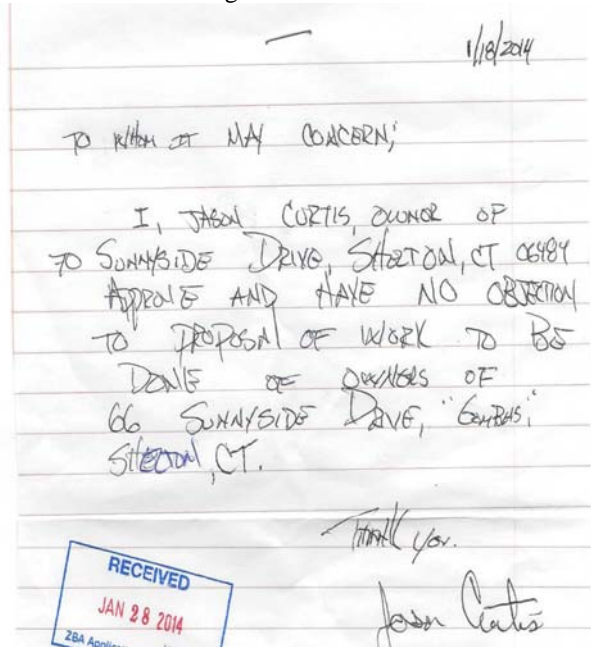 1/18/2014
TO WHOM IT MAY CONCERN;
I, JASON CURTIS, OWNER OF
70 SUNNYSIDE DRIVE, SHELTON, CT 06484
APPROVE AND HAVE NO OBJECTION
TO PROPOSAL OF WORK TO BE
DONE OF OWNERS OF
66 SUNNYSIDE DRIVE,
SHELTON, CT.
THANK YOU.
Jason Curtis
RECEIVED
JAN 28 2014
ZBA